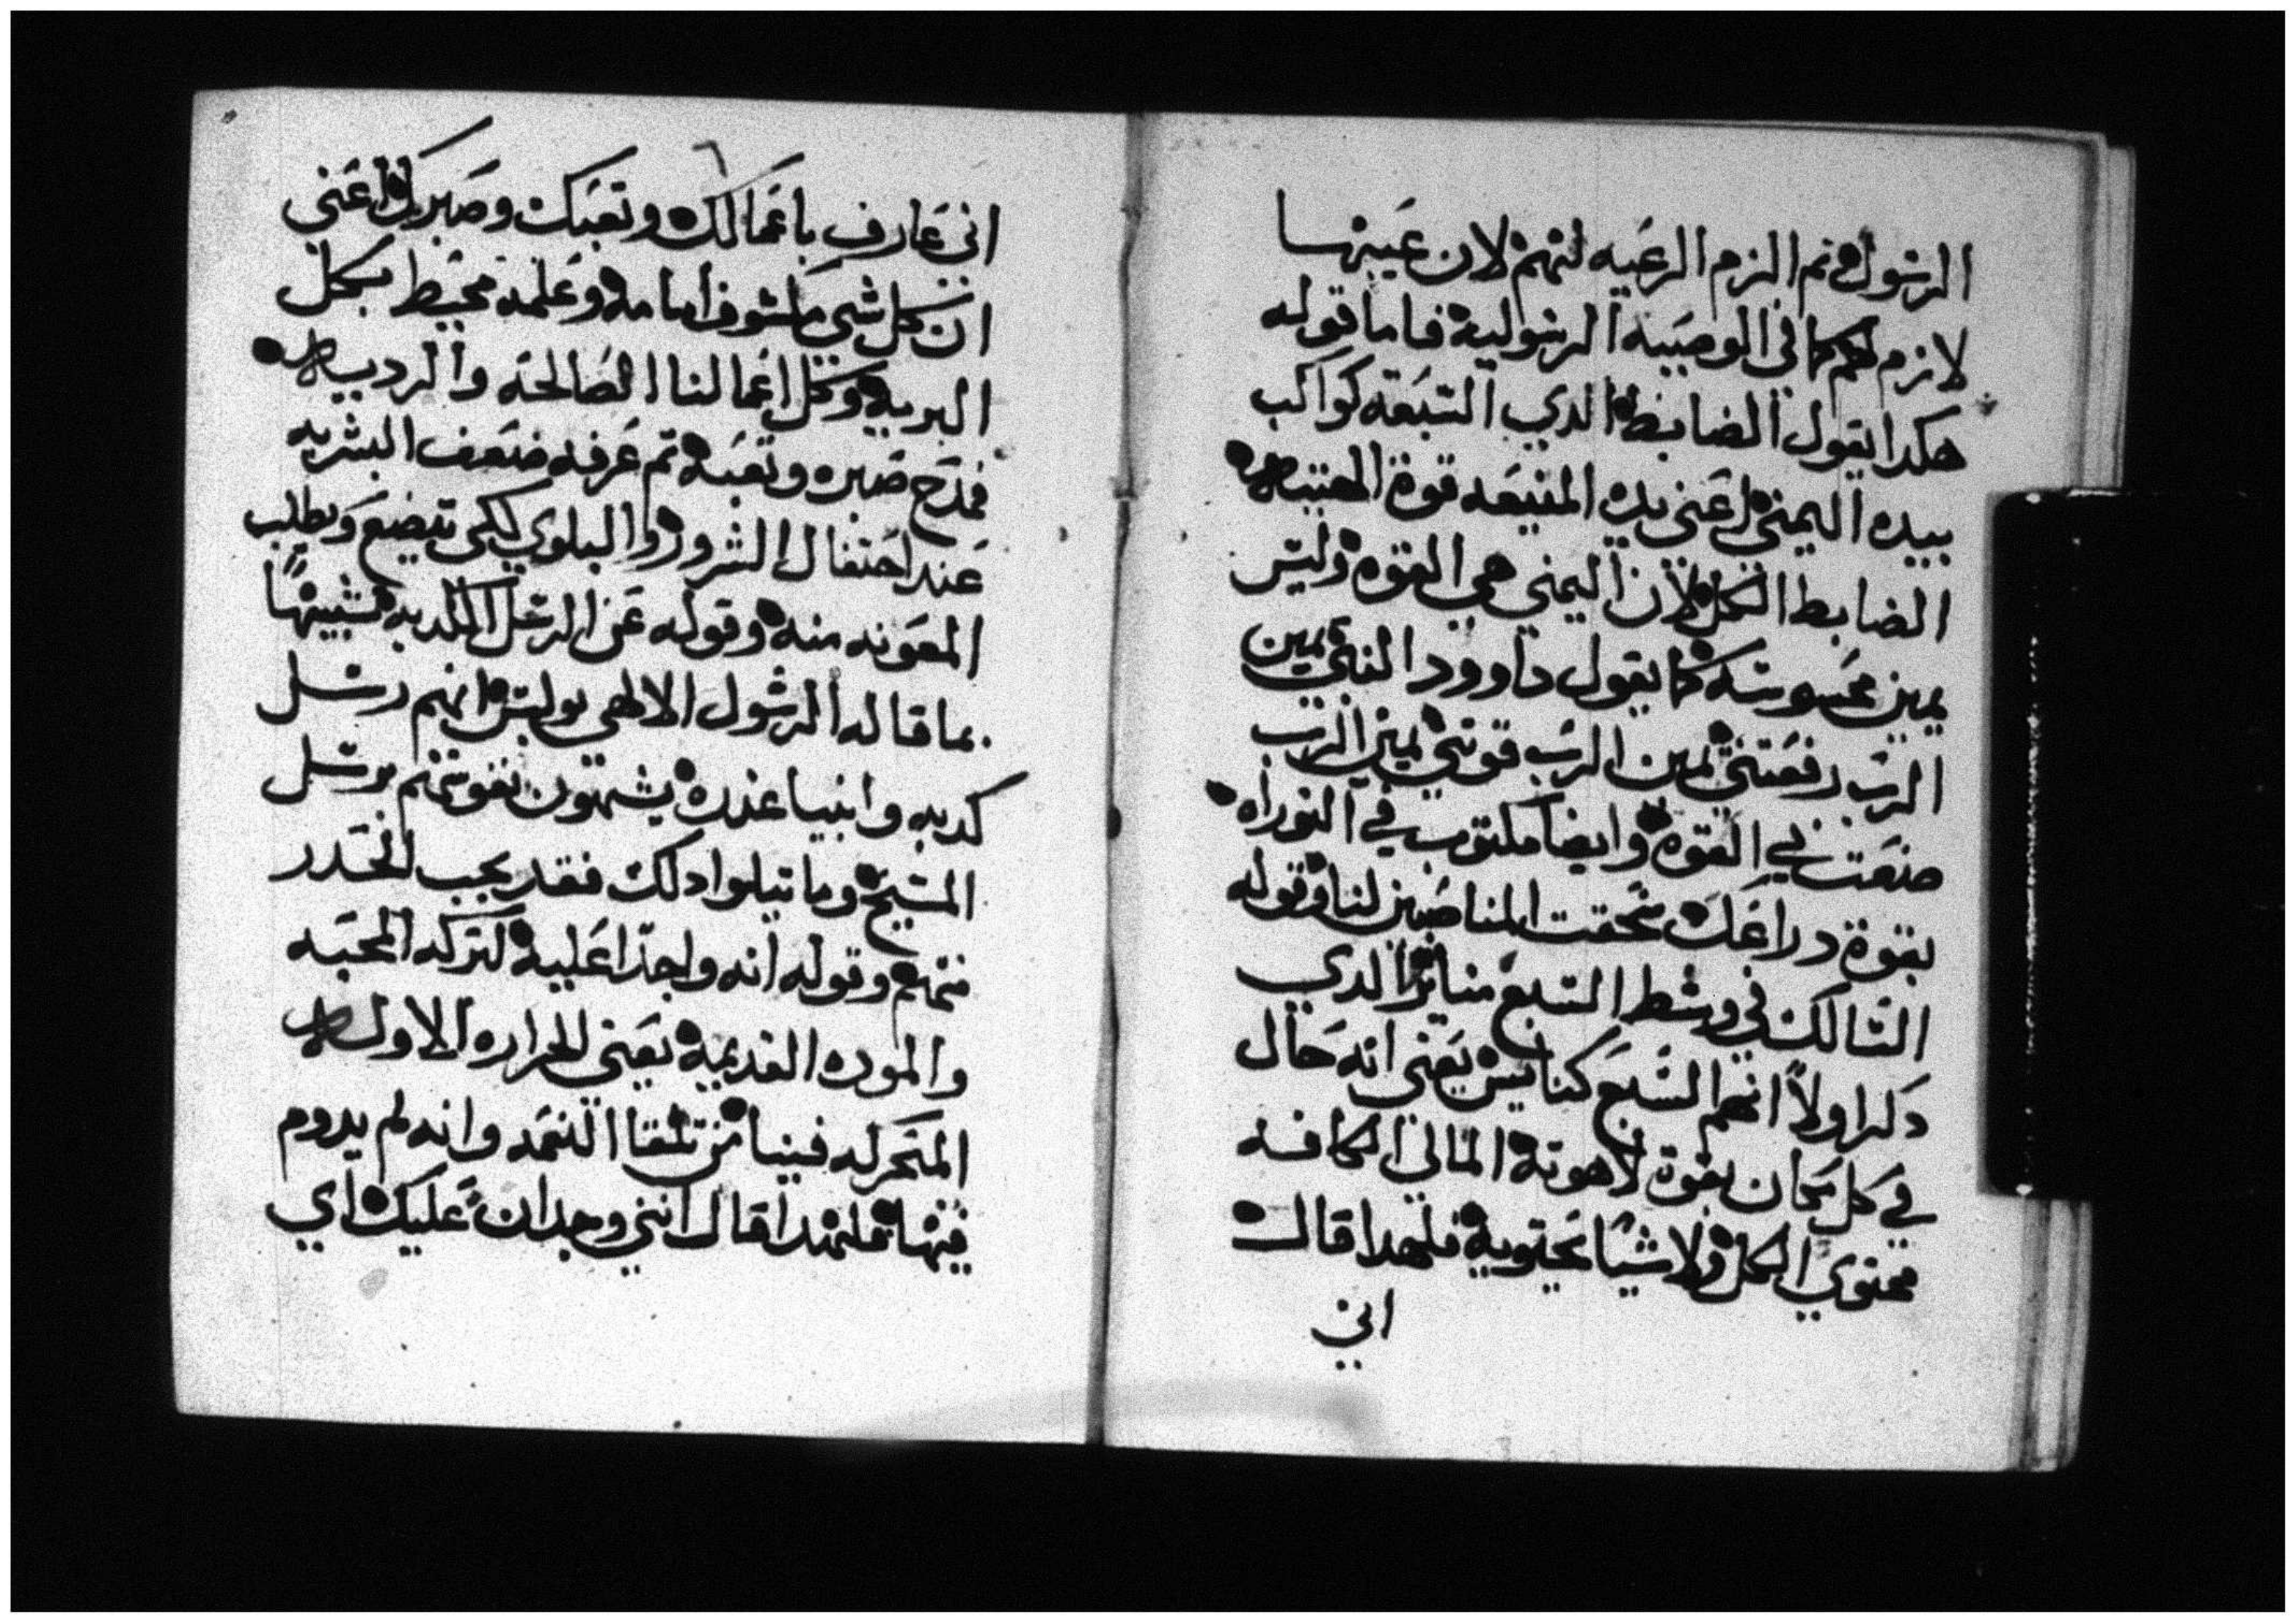 الرسول ثم الزم الرعيه لتهتم لان عيبتها
لازم لكم كما في الوصيه الرسوليه فاما قوله
هكدا يقول الضابط الدي السبعه كواكب
بيده اليمني اعني يده المنيعه قوة
الضابط الكل لان اليمني هي القوه وليس
يمين محسوسه كما يقول داوود النبي يمين
الرب رفعتني يمين الرب قوتني يمين الرب
صنعت بي القوه وايضا مكتوب في التوراه
بقوة دراعك سحقت المناصبين لنا وقوله
السالك في وسط السبع مناير الدي
دكر اولا انهم السبع كنايس يعني انه حال
في كل مكان بقوة لاهوته المالي الكافه
محتوي الكل ولا شيا يحتويه فلهدا قال
اني
٦
اني عارف باعمالك وتعبك وصبرك اعني
ان كل شي مكشوف امامه وعلمه محيط بكل
البريه وكل اعمالنا الصالحه والرديه
فمدح صبره وتعبه ثم عرفه ضعف البشريه
عند احتفال الشرور والبلوي لكي تيضع ويطلب
المعونه منه وقوله عن الرسل الكدبه تشبيها
بما قاله الرسول الالهي بولس انهم رسل
كدبه وانبيا غدره يشبهون نفوسهم برسل
المسيح وما تيلوا دلك فقد يجب الحدر
منهم وقوله انه واجدا عليه لتركه المحبه
والموده القديمه يعني الحراره الاوله
المتحركه فينا من تلقا النعمه وانه لم يدوم
فيها فلهدا قال انني وجدان عليك اي